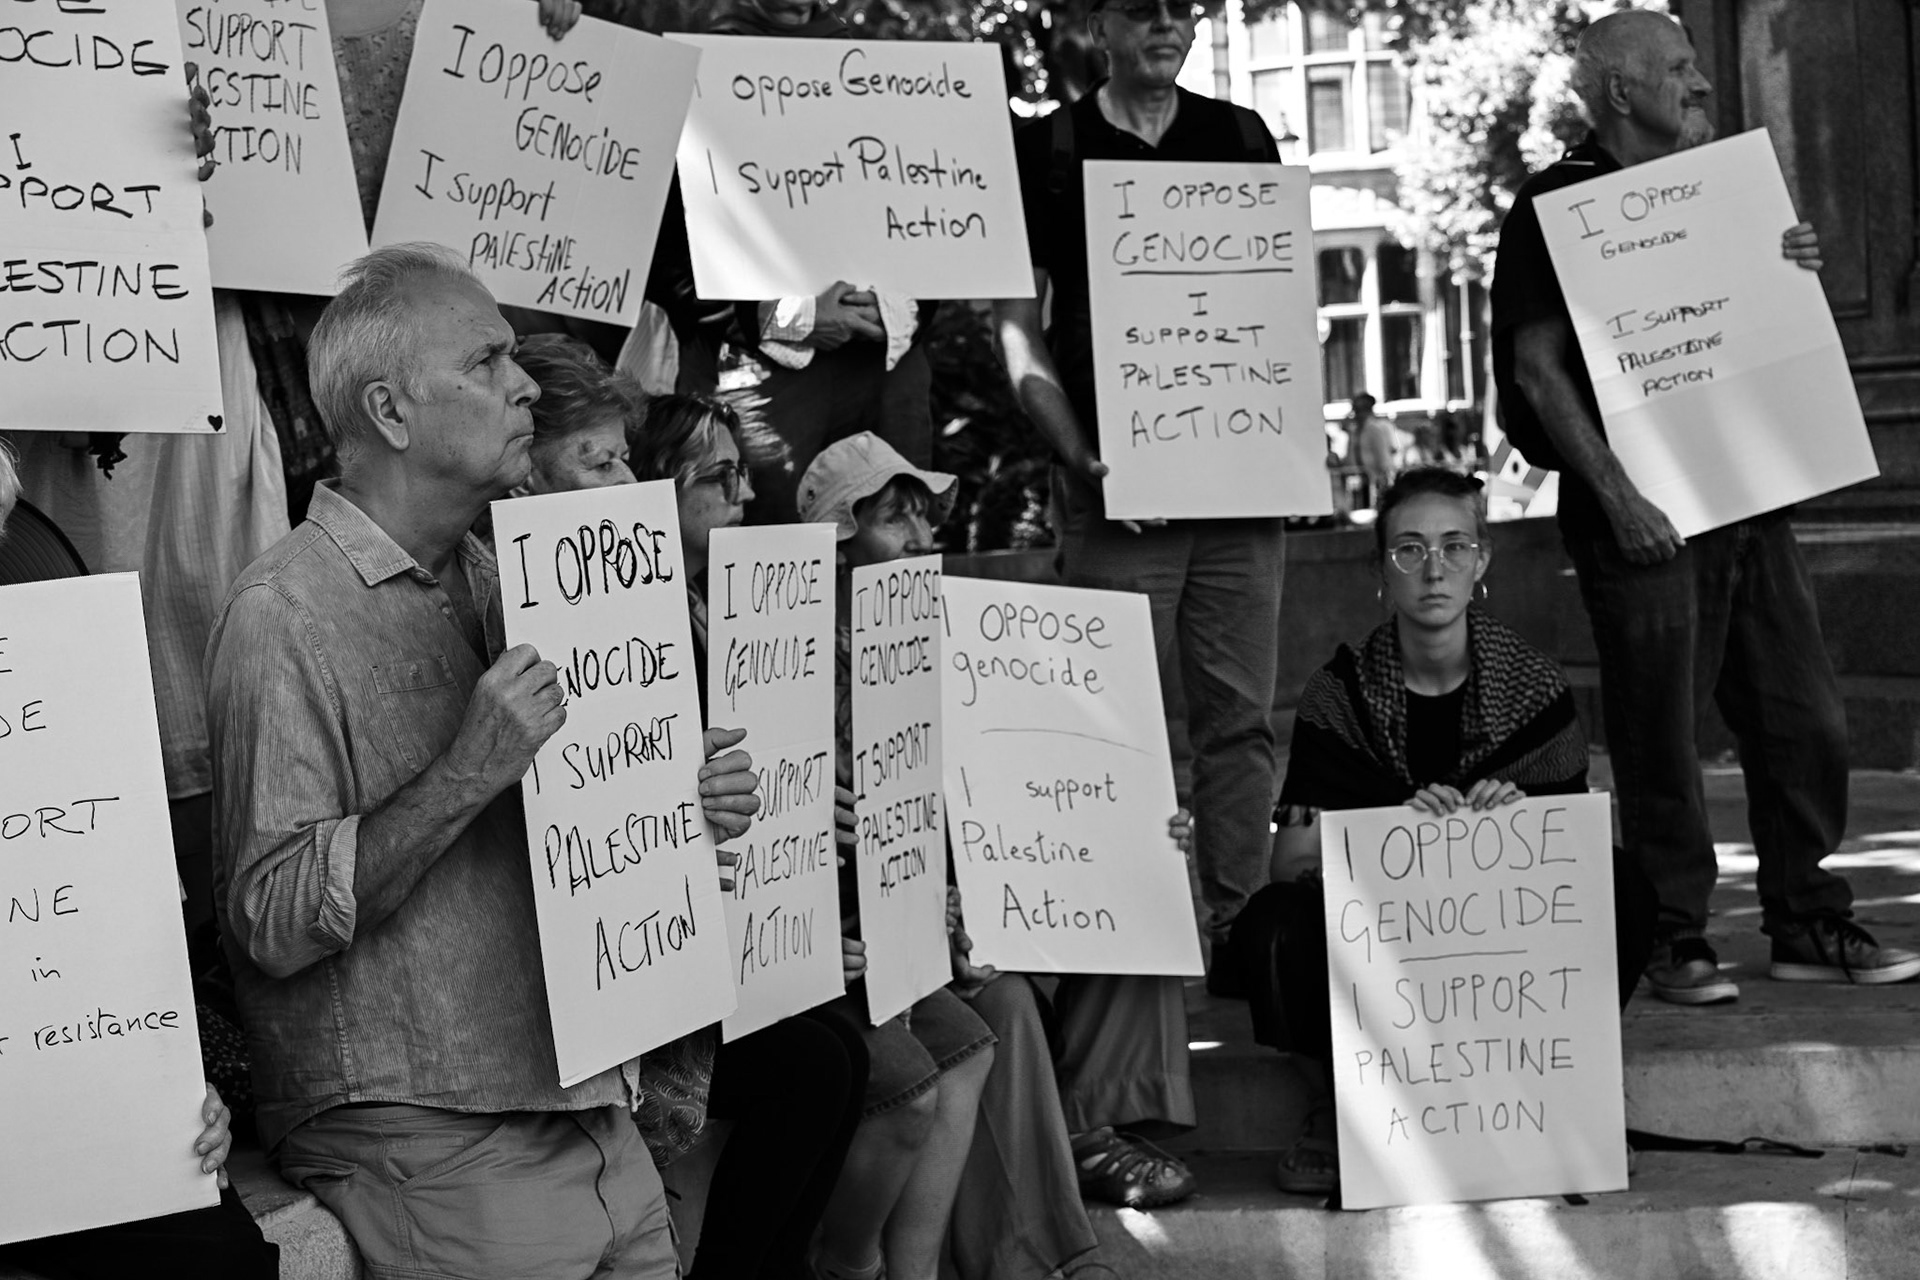 OCIDE
I
PPORT
LESTINE
ACTION
SUPPORT
LESTINE
CTION
I OPPOSE
GENOCIDE
I SUPPORT
PALESTINE
ACTION
I OPPOSE GENOCIDE
I SUPPORT Palestine
Action
I OPPOSE
GENOCIDE
I
SUPPORT
PALESTINE
ACTION
I OPPOSE
GENOCIDE
I SUPPORT
PALESTINE
ACTION
E
DE
ORT
NE
in
resistance
I OPPOSE
ENOCIDE
I SUPPORT
PALESTINE
ACTION
I OPPOSE
GENOCIDE
SUPPORT
PALESTINE
ACTION
I OPPOSE
GENOCIDE
I SUPPORT
PALESTINE
ACTION
I OPPOSE
genocide
I support
Palestine
Action
I OPPOSE
GENOCIDE
I SUPPORT
PALESTINE
ACTION